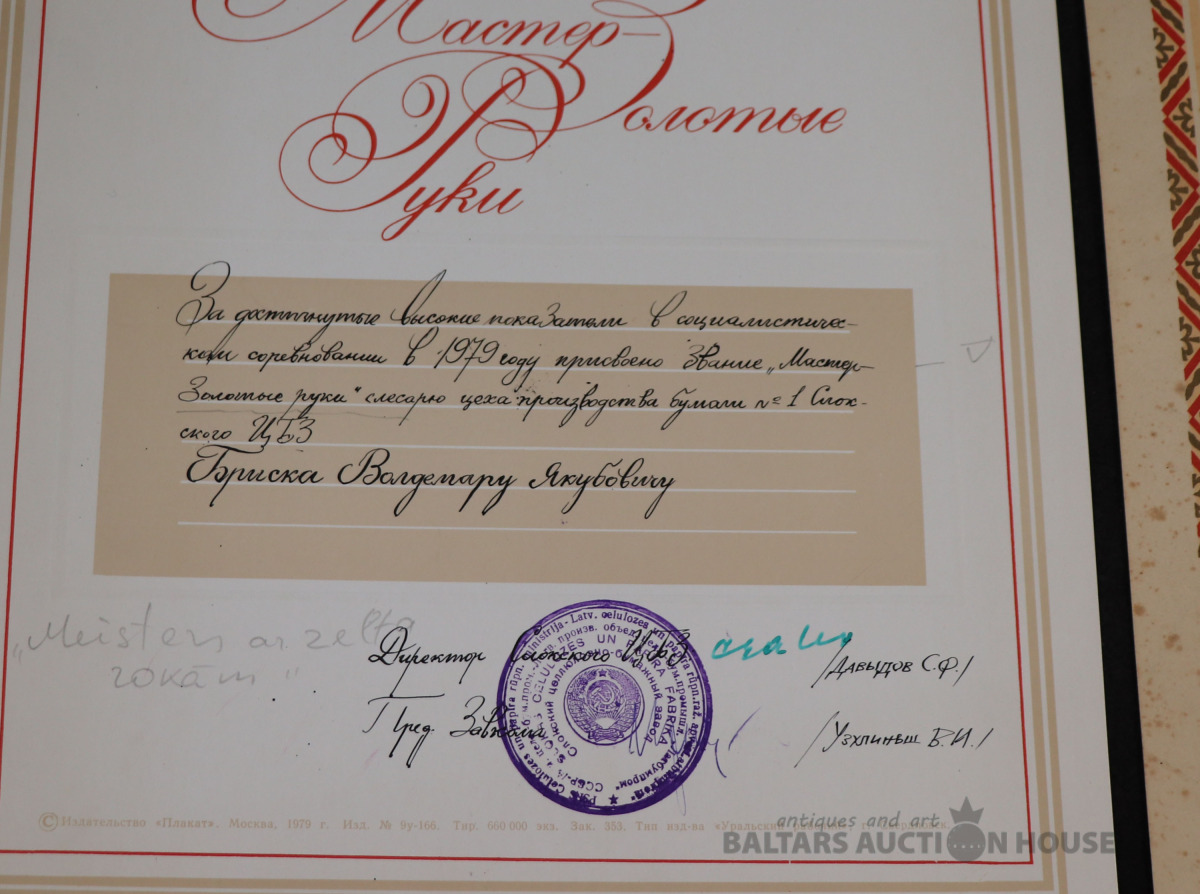 Мастер-
Золотые
Руки
За достигнутые высокие показатели в социалистичес-
ком соревновании в 1979 году присвоено звание „Мастер-
Золотые руки" слесарю цеха производства бумаги № 1 Слок-
ского ЦБЗ
Бриска Волдемару Якубовичу
V
„Meisters ar zelta
rokām"
Директор Слокского ЦБЗ /Давыдов С.Ф./
Пред. Завкома /Узулиньш В.И./
SLOKAS CELULOZES UN PAPĪRA FABRIKA
Слокский целлюлозно-бумажный завод
© Издательство «Плакат». Москва, 1979 г. Изд. № 9у-166. Тир. 660 000 экз. Зак. 353. Тип. изд-ва «Уральский рабочий», г. Свердловск.
antiques and art
BALTARS AUCTION HOUSE